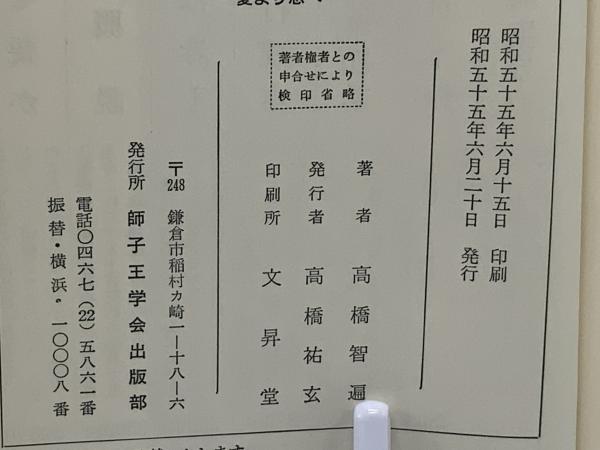 昭和五十五年六月十五日 印刷
昭和五十五年六月二十日 発行
著者権者との
申合せにより
検印省略
著者 高橋智遍
発行者 高橋祐玄
印刷所 文昇堂
〒248 鎌倉市稲村カ崎一ー十八ー六
発行所 師子王学会出版部
電話〇四六七(22)五八六一番
振替・横浜〃一〇〇〇八番